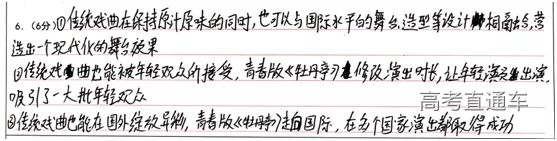 6. (6分)①传统戏曲在保持原汁原味的同时,也可以与国际水平的舞台、造型等设计相融合,营
造出一个现代化的舞台效果
②传统戏曲也能被年轻观众所接受,青春版《牡丹亭》修改演出时长,让年轻演员出演
吸引了一大批年轻观众
③传统戏曲也能在国外绽放异彩,青春版《牡丹亭》走向国际,在多个国家演出都取得成功
高考直通车